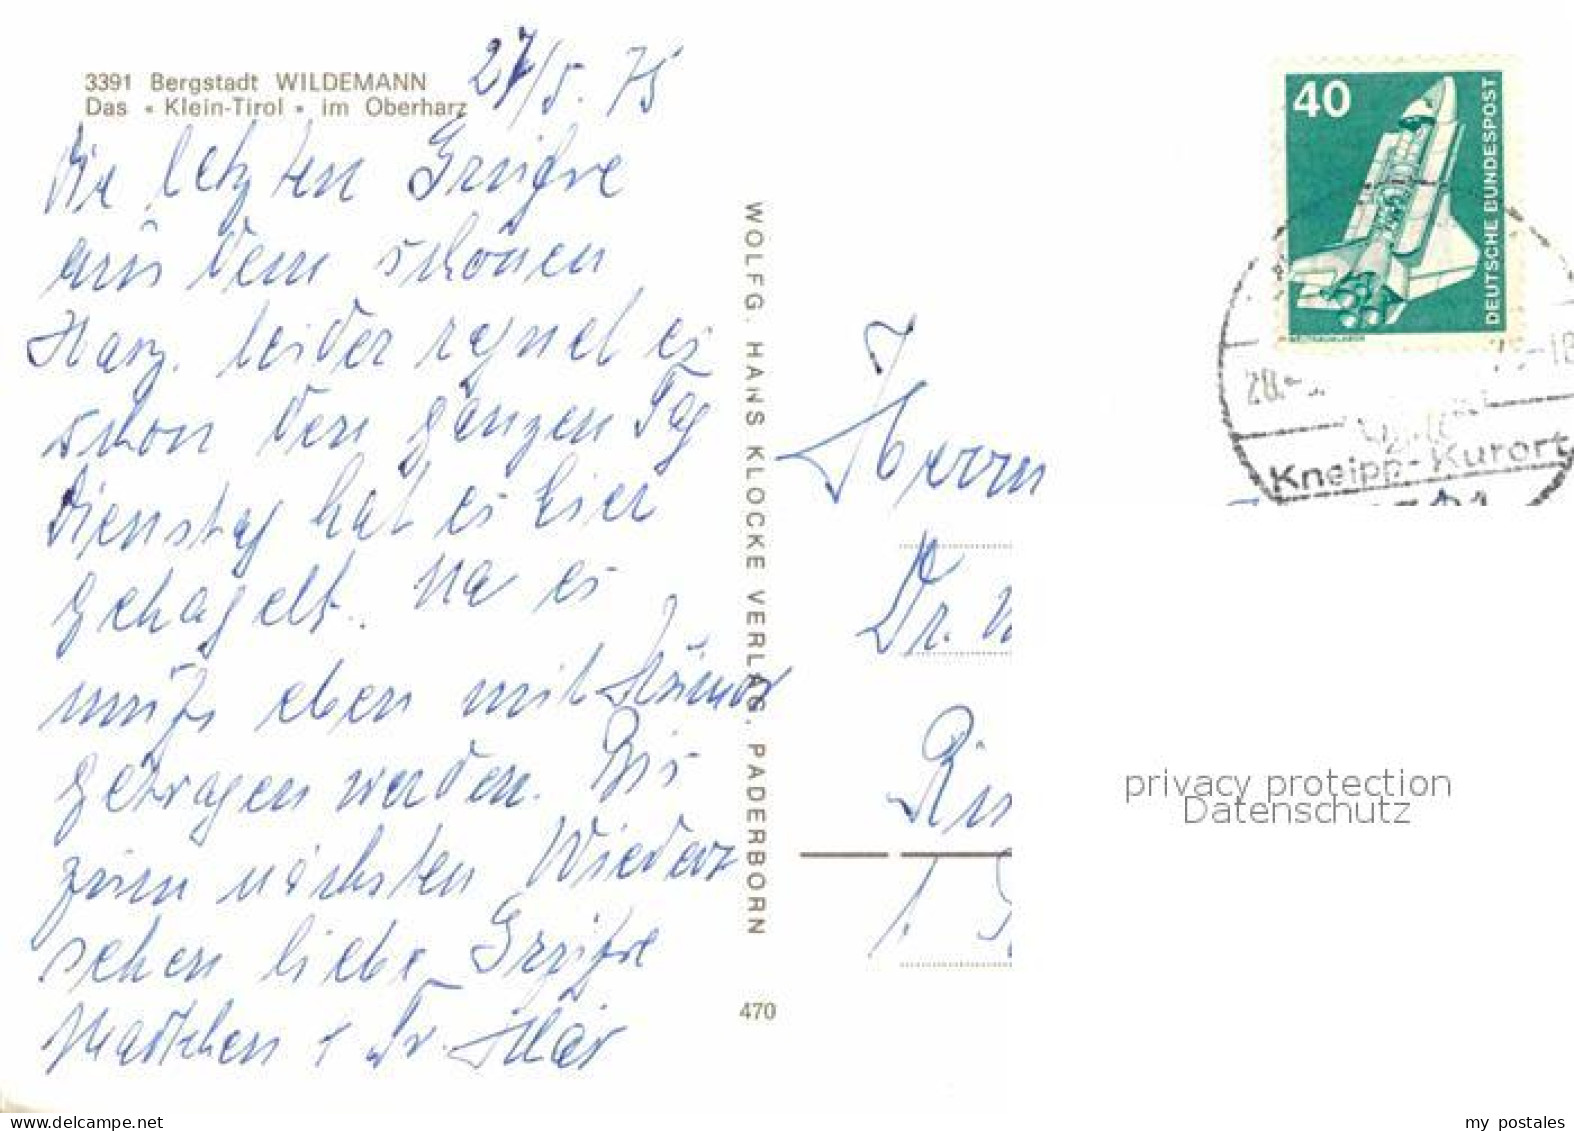 3391 Bergstadt WILDEMANN
Das « Klein-Tirol » im Oberharz
27/5. 75
Die letzten Grüße
aus dem schönen
Harz. leider regnet es
schon den ganzen Tag
Dienstag hat es hier
gehagelt. Na es
muß eben mit Humor
getragen werden. Bis
zum nächsten Wieder
sehen liebe Grüße
WOLFG. HANS KLOCKE VERLAG. PADERBORN
470
40
DEUTSCHE BUNDESPOST
Kneipp-Kurort
Herrn
Dr.
privacy protection
Datenschutz
www.delcampe.net
my postales